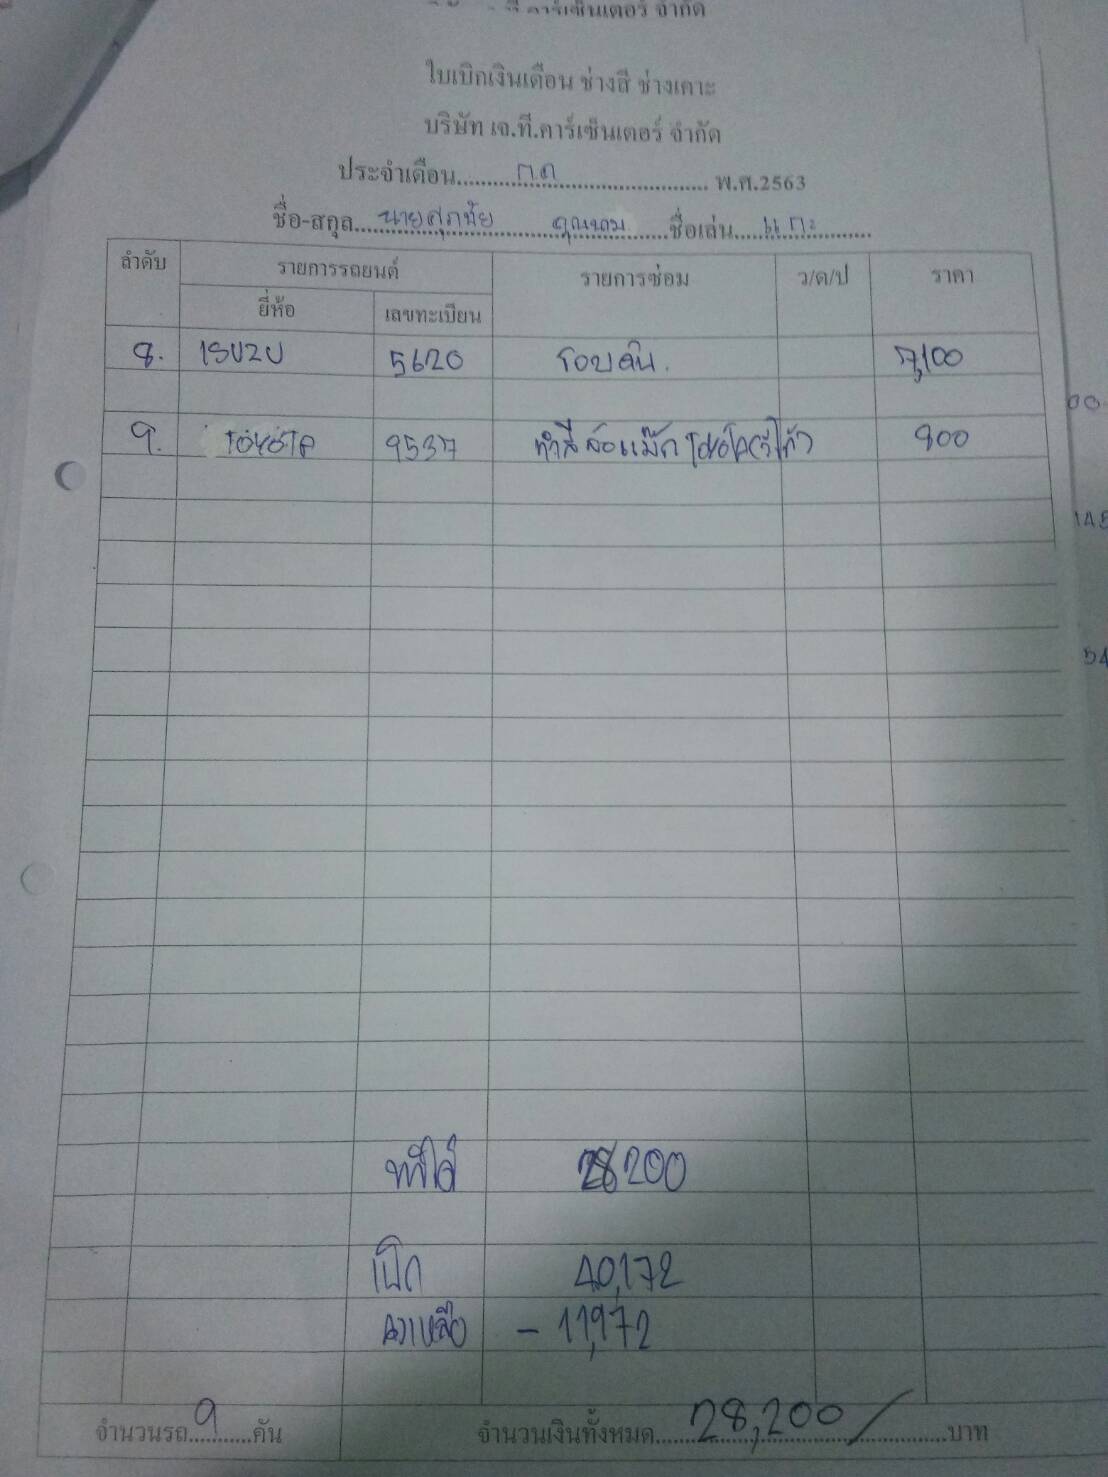 คาร์เซ็นเตอร์ จำกัด
ใบเบิกเงินเดือน ช่างสี ช่างเคาะ
บริษัท เจ.ที.คาร์เซ็นเตอร์ จำกัด
ประจำเดือน.....กค.....พ.ศ.2563
ชื่อ-สกุล.....นายศุภชัย.....ชื่อเล่น.....แกะ.....
ลำดับ รายการรถยนต์ รายการซ่อม ว/ด/ป ราคา
ยี่ห้อ เลขทะเบียน
8. ISUZU 5620 รอบคัน. 100
9. TOYOTA 9537 ทำสีล้อแม็ก 900
00
148
54
ทำได้ 28200
เบิก 40,172
คงเหลือ - 11,972
จำนวนรถ.....9.....คัน จำนวนเงินทั้งหมด.....28,200/.....บาท